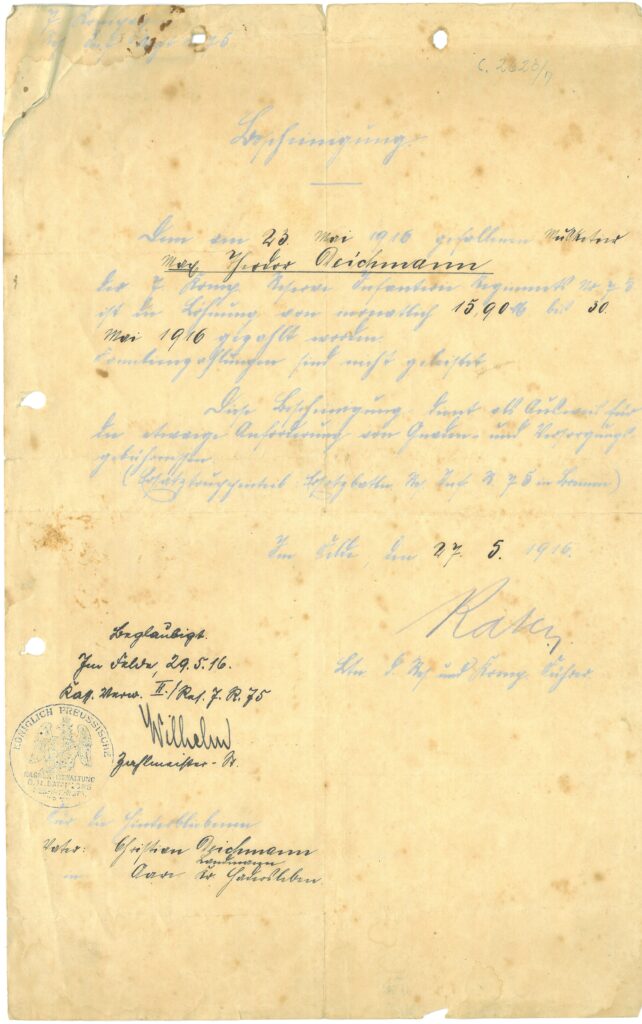 7. Komp.
C. 2323/17
Bescheinigung.
Dem am 23. Mai 1916 gefallenen Musketier
Max Theodor Deichmann
der 7. Komp. Reserve Infanterie Regiments Nr. 75
ist die Löhnung von monatlich 15,90 M bis 30.
Mai 1916 gezahlt worden.
Familienzahlungen sind nicht geleistet.
Diese Bescheinigung dient als Ausweis für
die etwaige Anforderung von Gnaden- und Versorgungs
gebührnissen.
(Ersatztruppenteil: Ersatzbatln. Res. Inf. R. 75 in Bremen)
Im Felde, den 27. 5. 1916.
Ltn. d. Res. und Komp. Führer.
Beglaubigt.
Im Felde, 29.5.16.
Kass. Verw. II./Res. J. R. 75
Wilhelm
Zahlmeister-St.
KÖNIGLICH PREUSSISCHE
KASSENVERWALTUNG
Für die Hinterbliebenen
Vater: Christian Deichmann
Landmann
in Aarö Kr. Hadersleben.